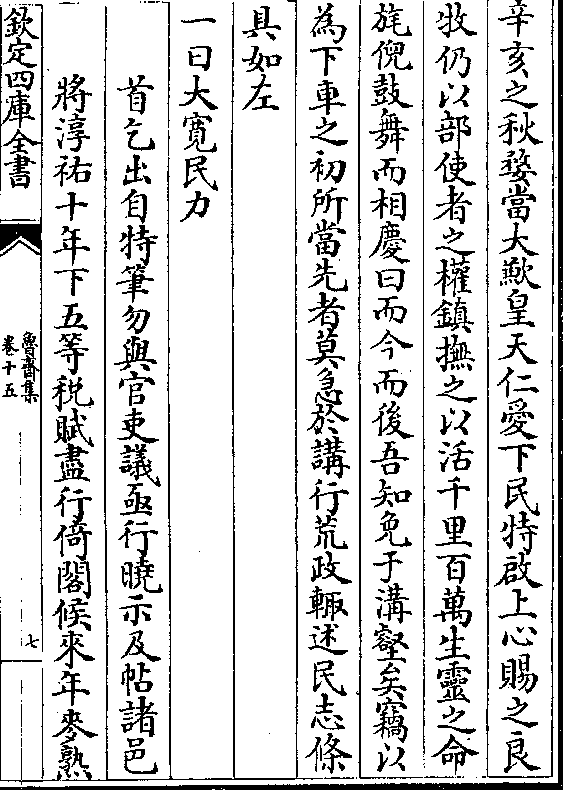 辛亥之秋婺當大歉皇天仁愛下民特啟上心賜之良
牧仍以部使者之權鎮撫之以活千里百萬生靈之命
旄倪鼓舞而相慶曰而今而後吾知免于溝壑矣竊以
為下車之初所當先者莫急於講行荒政輙述民志條
具如左
一曰大寛民力
首乞出自特筆勿與官吏議亟行曉示及帖諸邑
將淳祐十年下五等税賦盡行倚閣候來年麥熟
欽定四庫全書
魯齋集
卷十五
七